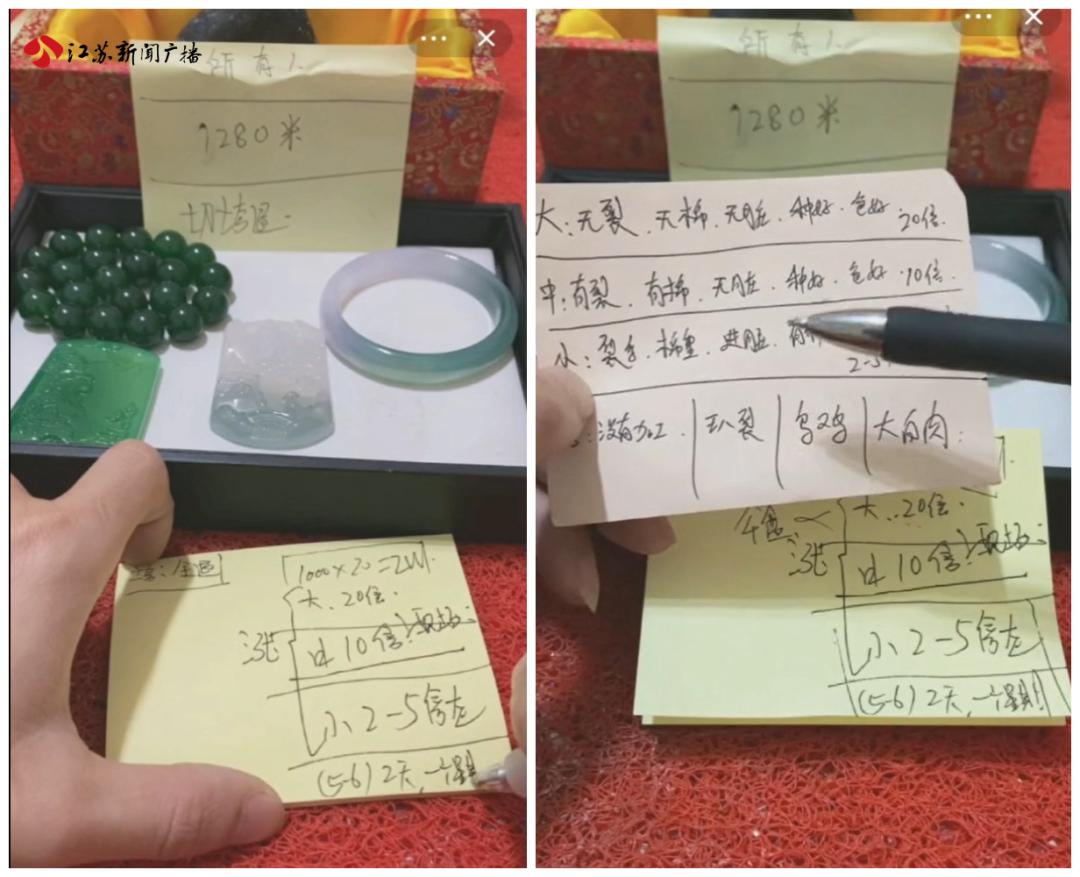 江苏新闻广播
所有人
1280米
1000×20=2W
大、20倍
涨
中10倍
现场
小2-5倍左
(5-6)2天,一个星期
所有人
1280米
大:无裂、无棉、无脏、种好、色好 20倍
中:有裂、有棉、无脏、种好、色好 10倍
小:裂多、棉重、进脏、有
没有加工
扒裂
乌鸡
大白肉
大、20倍
涨
中10倍
现场
小2-5倍左
(5-6)2天,一个星期